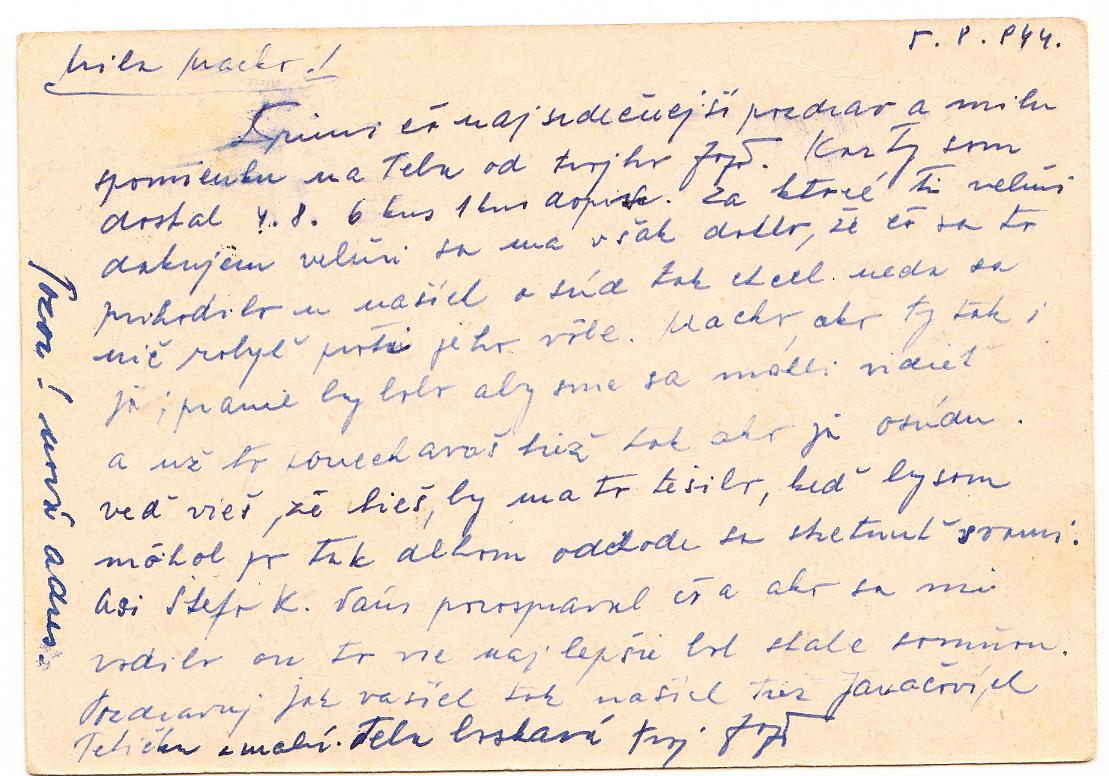 5. 8. 944.
Milá Macko!
Príjmi čo najsrdečnejší pozdrav a milu
spomienku na Teba od tvojho Joži. Karty som
dostal 4.8. 6 kus 1 kus dopis. Za ktoré ti velmi
dakujem velmi sa ma však dotklo, že čo sa to
prihodilo u našich osúd tak chcel neda sa
nič robyť proti jeho vôle. Macko ako ty tak i
ja, pranie by bolo aby sme sa mohli vidieť
a už to tiež tak ako ja osúdu.
veď vieš, že tiež by ma to tešilo, keď by som
môhol po tak dlhom odchode sa stretnuť s vami.
Asi Štefo K. Vám porosprával čo a ako sa mi
vodilo on to vie najlepšie bol stále somňou.
Pozdravuj jak vašich tak našich tiež Janačových
Tetičku . Teba bozkává tvoj Joži
Pozor! nová adres.